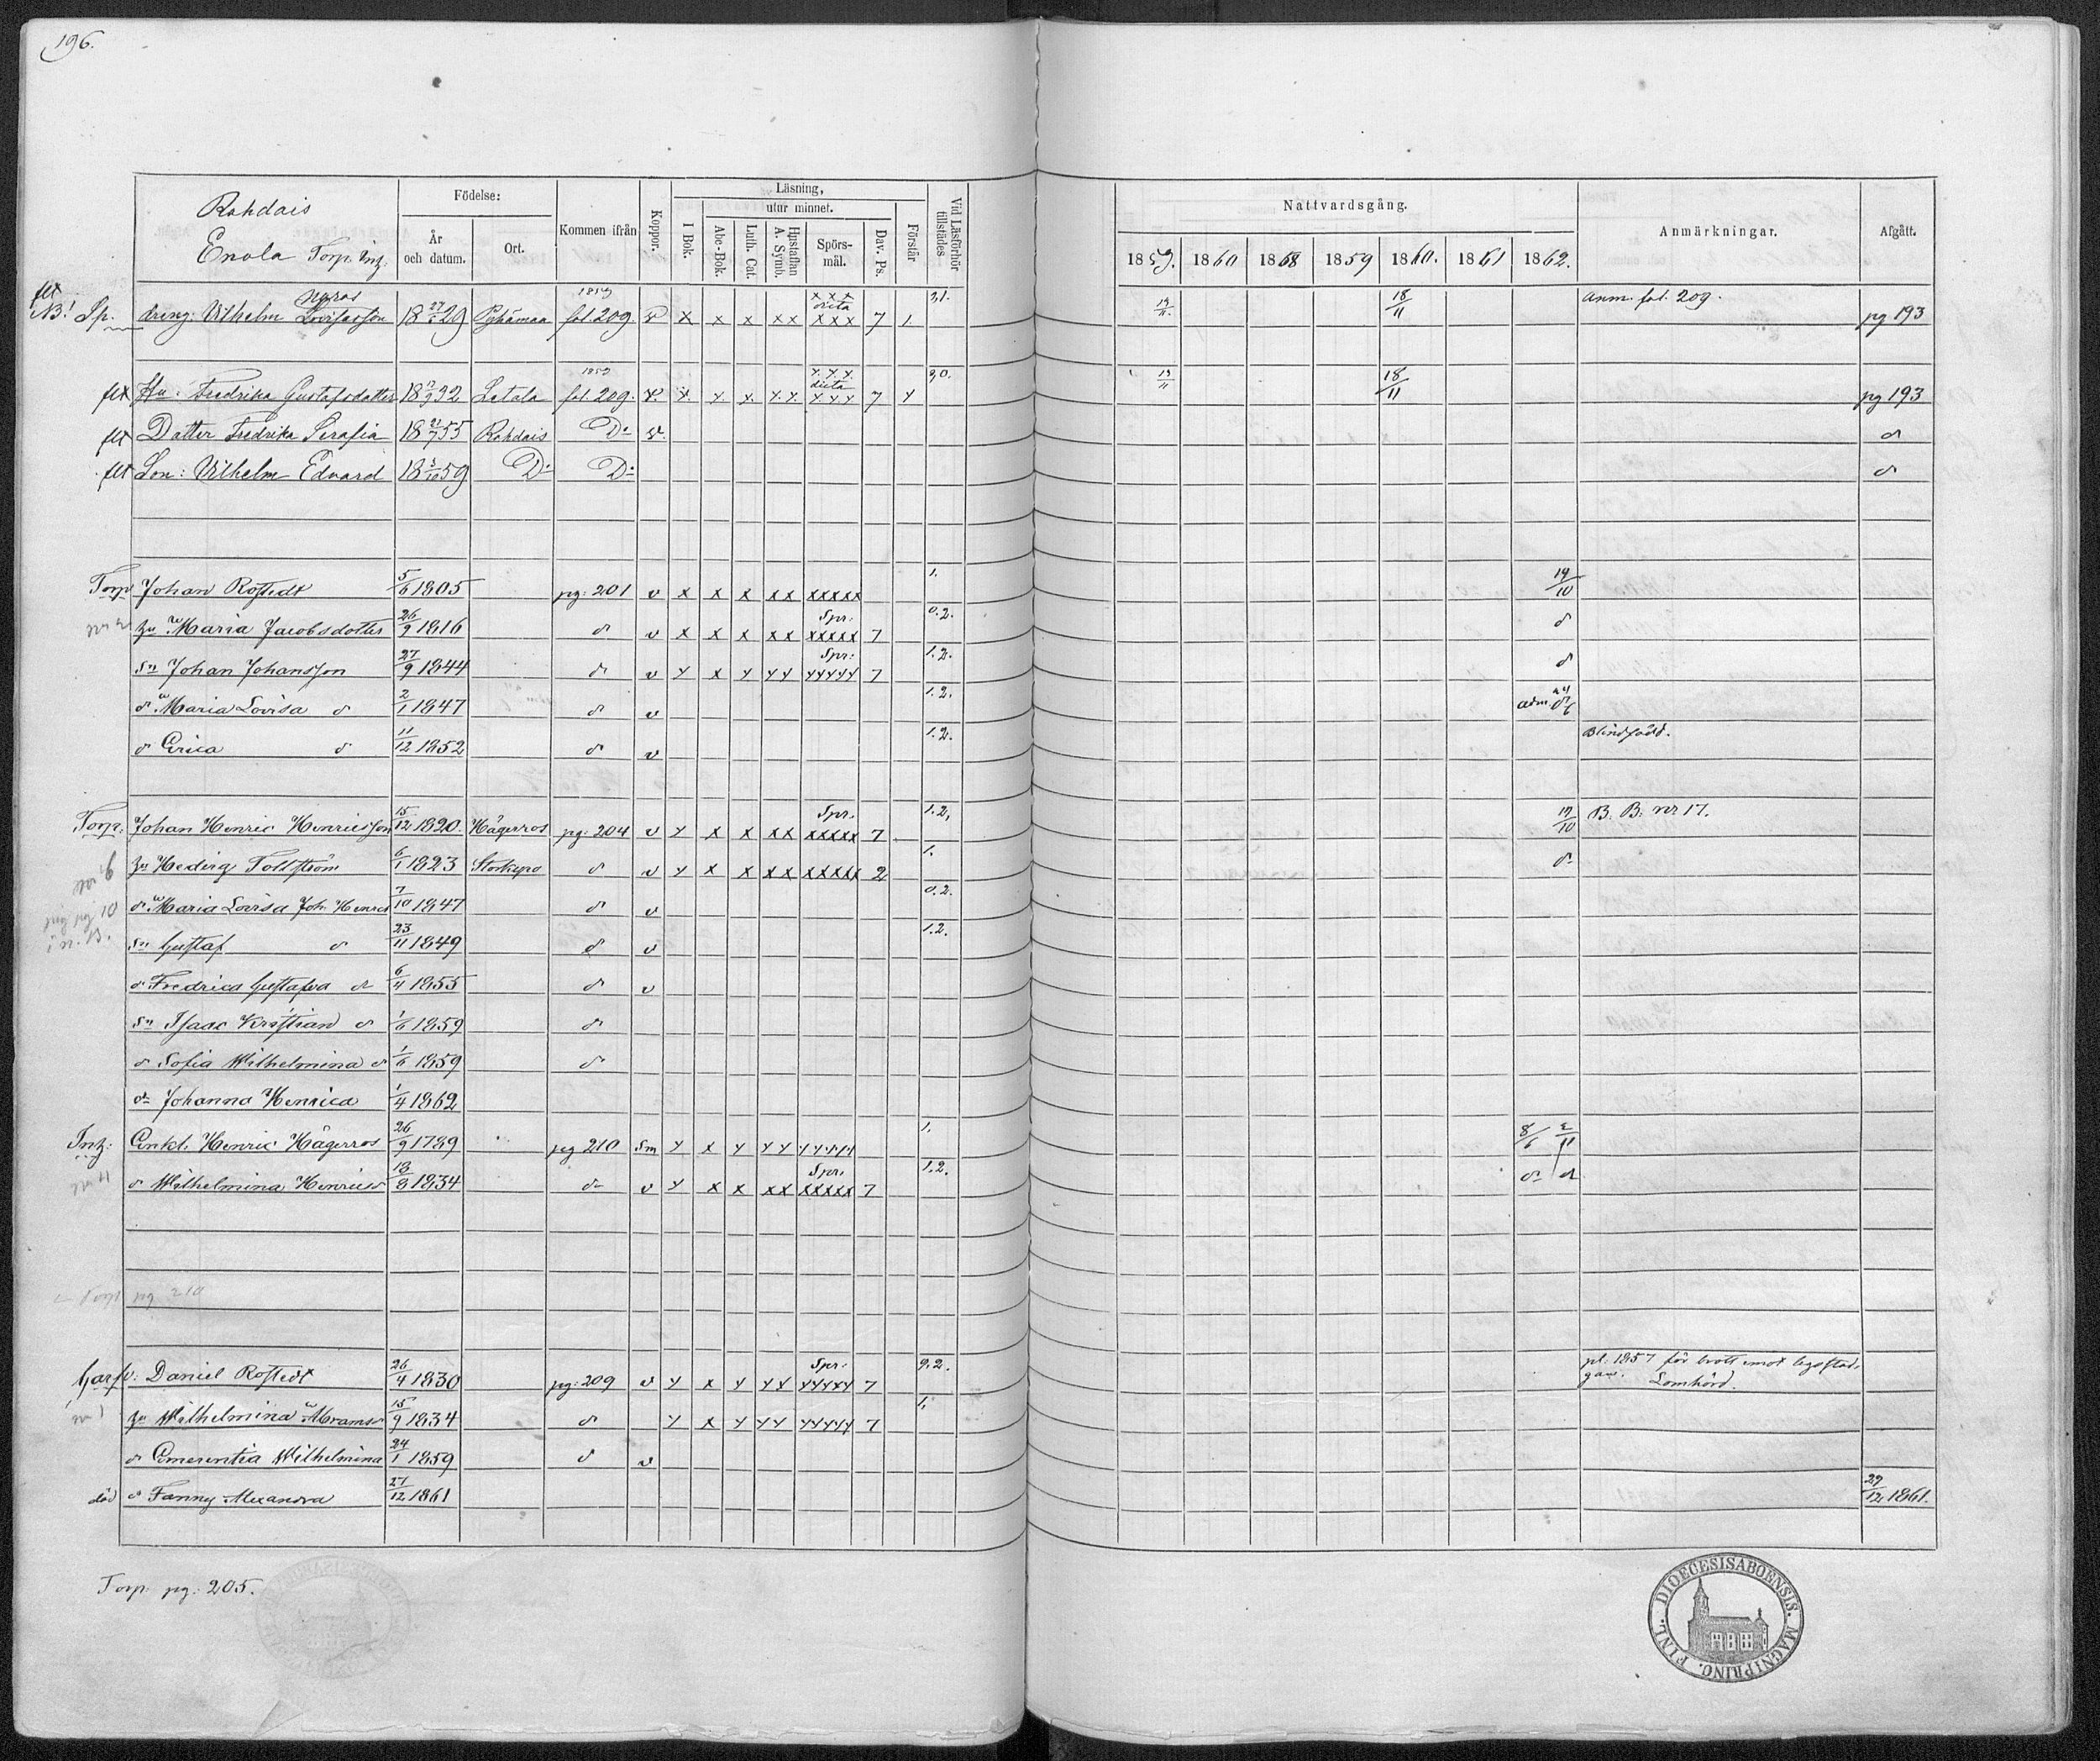 196.
Rahdais
Enola Torp. Inh.
Födelse:
År och datum.
Ort.
Kommen ifrån
Koppor.
Läsning,
I Bok.
utur minnet.
Abc-Bok.
Luth. Cat.
Hustaflan A. Symb.
Spörsmål.
Dav. Ps.
Förstår
Vid Läsförhör tillstädes
Nattvardsgång.
1859. 1860 1868 1859 1860. 1861 1862.
Anmärkningar.
Afgått.
flt NB! Sp. dreng: Vilhelm Lovisasson 18 29 Pyhämaa 1859 fol. 209. v x x x xx x x x dicta x x x 7 1. 19/11 18/11 Anm. fol. 209. pg 193
flt Hu: Fredrika Gustafsdotter 18 32 Letala 1859 fol. 209. v. x x x x x x x x dicta x x x 7 x 19/11 18/11 pg 193
flt Dotter Fredrika Serafia 18 55 Rahdais Do v. d
flt Son: Vilhelm Edvard 18 59 Do Do d
Torp Johan Rostedt 5/6 1805 pg: 201 v x x x xx xxxxx 1. 19/10
hu Maria Jacobsdotter 26/9 1816 d v x x x xx Spr: xxxxx 7 0.2. d
sn Johan Johansson 27/9 1844 d v x x x xx Spr: xxxxx 7 1.2. d
d Maria Lovisa d 2/1 1847 d v 1.2. adm.
d Erica d 11/12 1852 d v 1.2. Blindfödd.
Torp. Johan Henric Henricsson 15/12 1820. Hägerros pg: 204 v x x x xx Spr. xxxxx 7 1.2, 19/10 B. B. nr 17.
hu Hedvig Tollström 6/1 1823 d v x x x xx xxxxx 2 1. d
d Maria Lovisa Joh. Henrics 7/10 1847 d v 0.2.
sn Gustaf d 23/11 1849 d v 1.2.
d Fredrica Gustafva d 6/4 1855 d v
sn Isaac Kristian d 1/6 1859 d
d Sofia Wilhelmina d 1/6 1859 d
d Johanna Henrica 1/4 1862
Inh: Enkl. Henric Hägerros 26/9 1789 pg 210 sm x x x xx xxxxx 1. 8/6 2/11
d Wilhelmina Henricsd 13/8 1834 d v x x x xx Spr. xxxxx 7 1.2. d d
Torp pg 210
Daniel Rostedt 26/4 1830 pg: 209 v x x x xx Spr: xxxxx 7 9.2. pl. 1857 för brott emot
Lomhörd.
hu Wilhelmina Abramsd 15/9 1834 d x x x xx xxxxx 7 1.
d Emerentia Wilhelmina 24/1 1859 d v
död d Fanny Alexandra 27/12 1861 29/12 1861.
Torp. pg. 205.
DIOECESIS ABOENSIS. MAGNI PRINC. FINL.